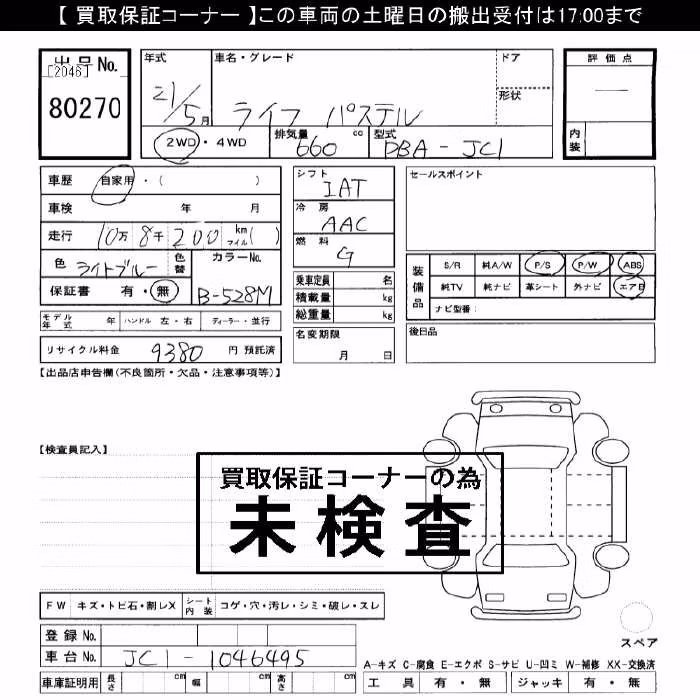 【 買取保証コーナー 】この車両の土曜日の搬出受付は17:00まで
出品 No.
[2046]
80270
年式 21/5月
車名・グレード ライフ パステル
ドア
形状
2WD・4WD
排気量 660 cc
型式 DBA-JC1
評価点
—
内装
車歴 自家用・( )
車検 年 月
走行 10万 8千 200 km マイル( )
色 ライトブルー 色替
カラーNo. B-528M
保証書 有・無
モデル年式 年 ハンドル 左・右 ディーラー・並行
リサイクル料金 9380 円 預託済
シフト IAT
冷房 AAC
燃料 G
乗車定員 名
積載量 kg
総重量 kg
名変期限 月 日
セールスポイント
装備品
S/R 純A/W P/S P/W ABS
純TV 純ナビ 革シート 外ナビ エアB
ナビ型番:
後日品
【出品店申告欄(不良箇所・欠品・注意事項等)】
【検査員記入】
買取保証コーナーの為
未検査
FW キズ・トビ石・割レX シート内装 コゲ・穴・汚レ・シミ・破レ・スレ
登録 No.
車台 No. JC1-1046495
車庫証明用 長さ cm 幅 cm 高さ cm
スペア
A-キズ C-腐食 E-エクボ S-サビ U-凹ミ W-補修 XX-交換済
工具 有・無 ジャッキ 有・無